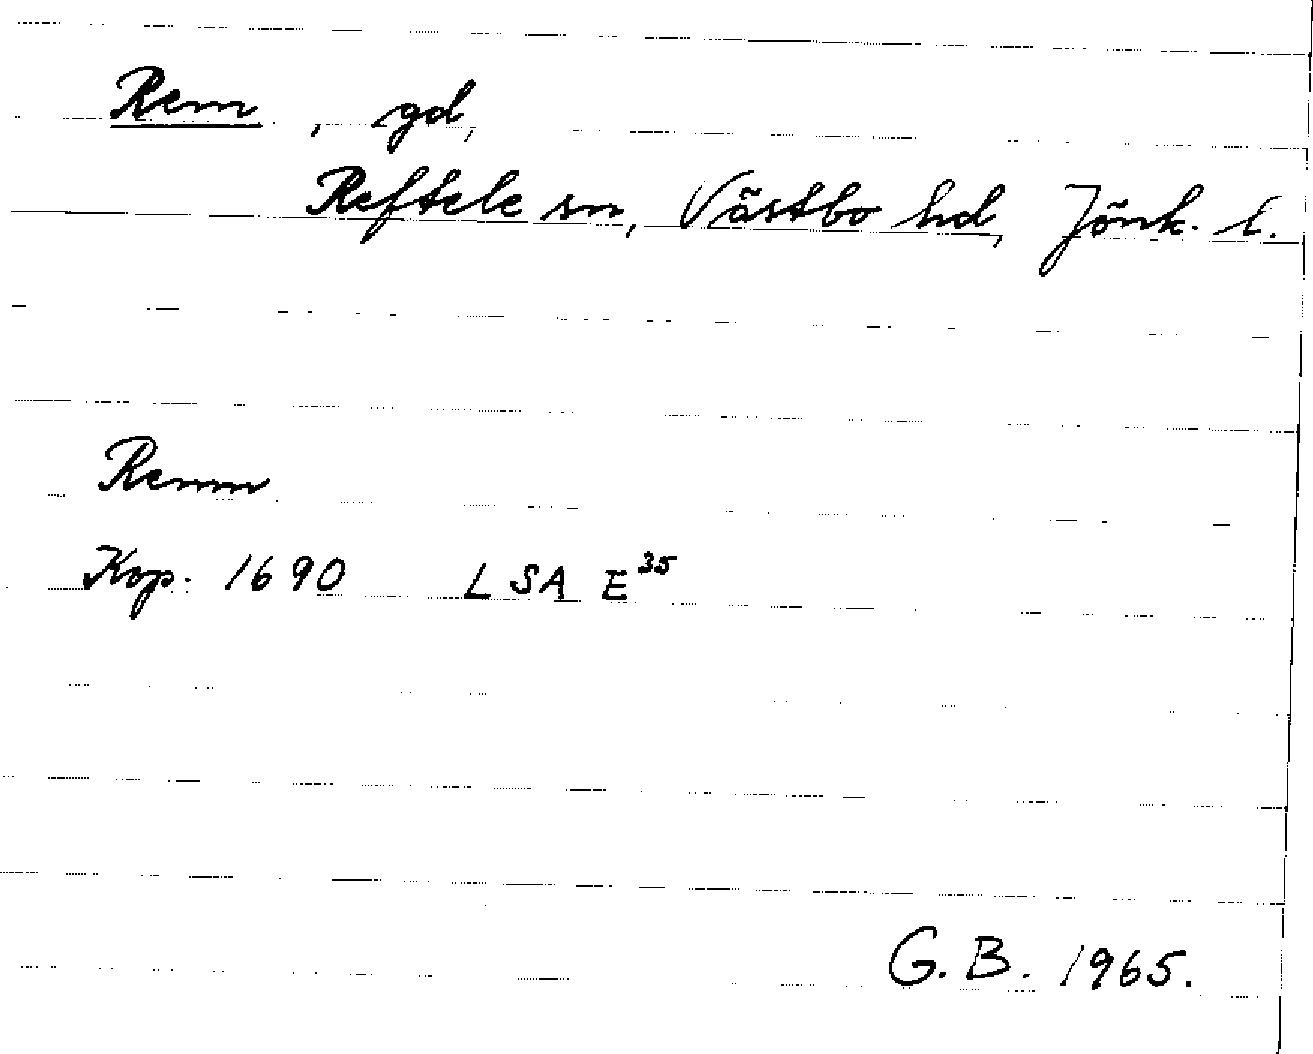 Rem, gd,
Reftele sn, Västbo hd, Jönk. l.
Remm
Kop. 1690 LSA E³⁵
G. B. 1965.